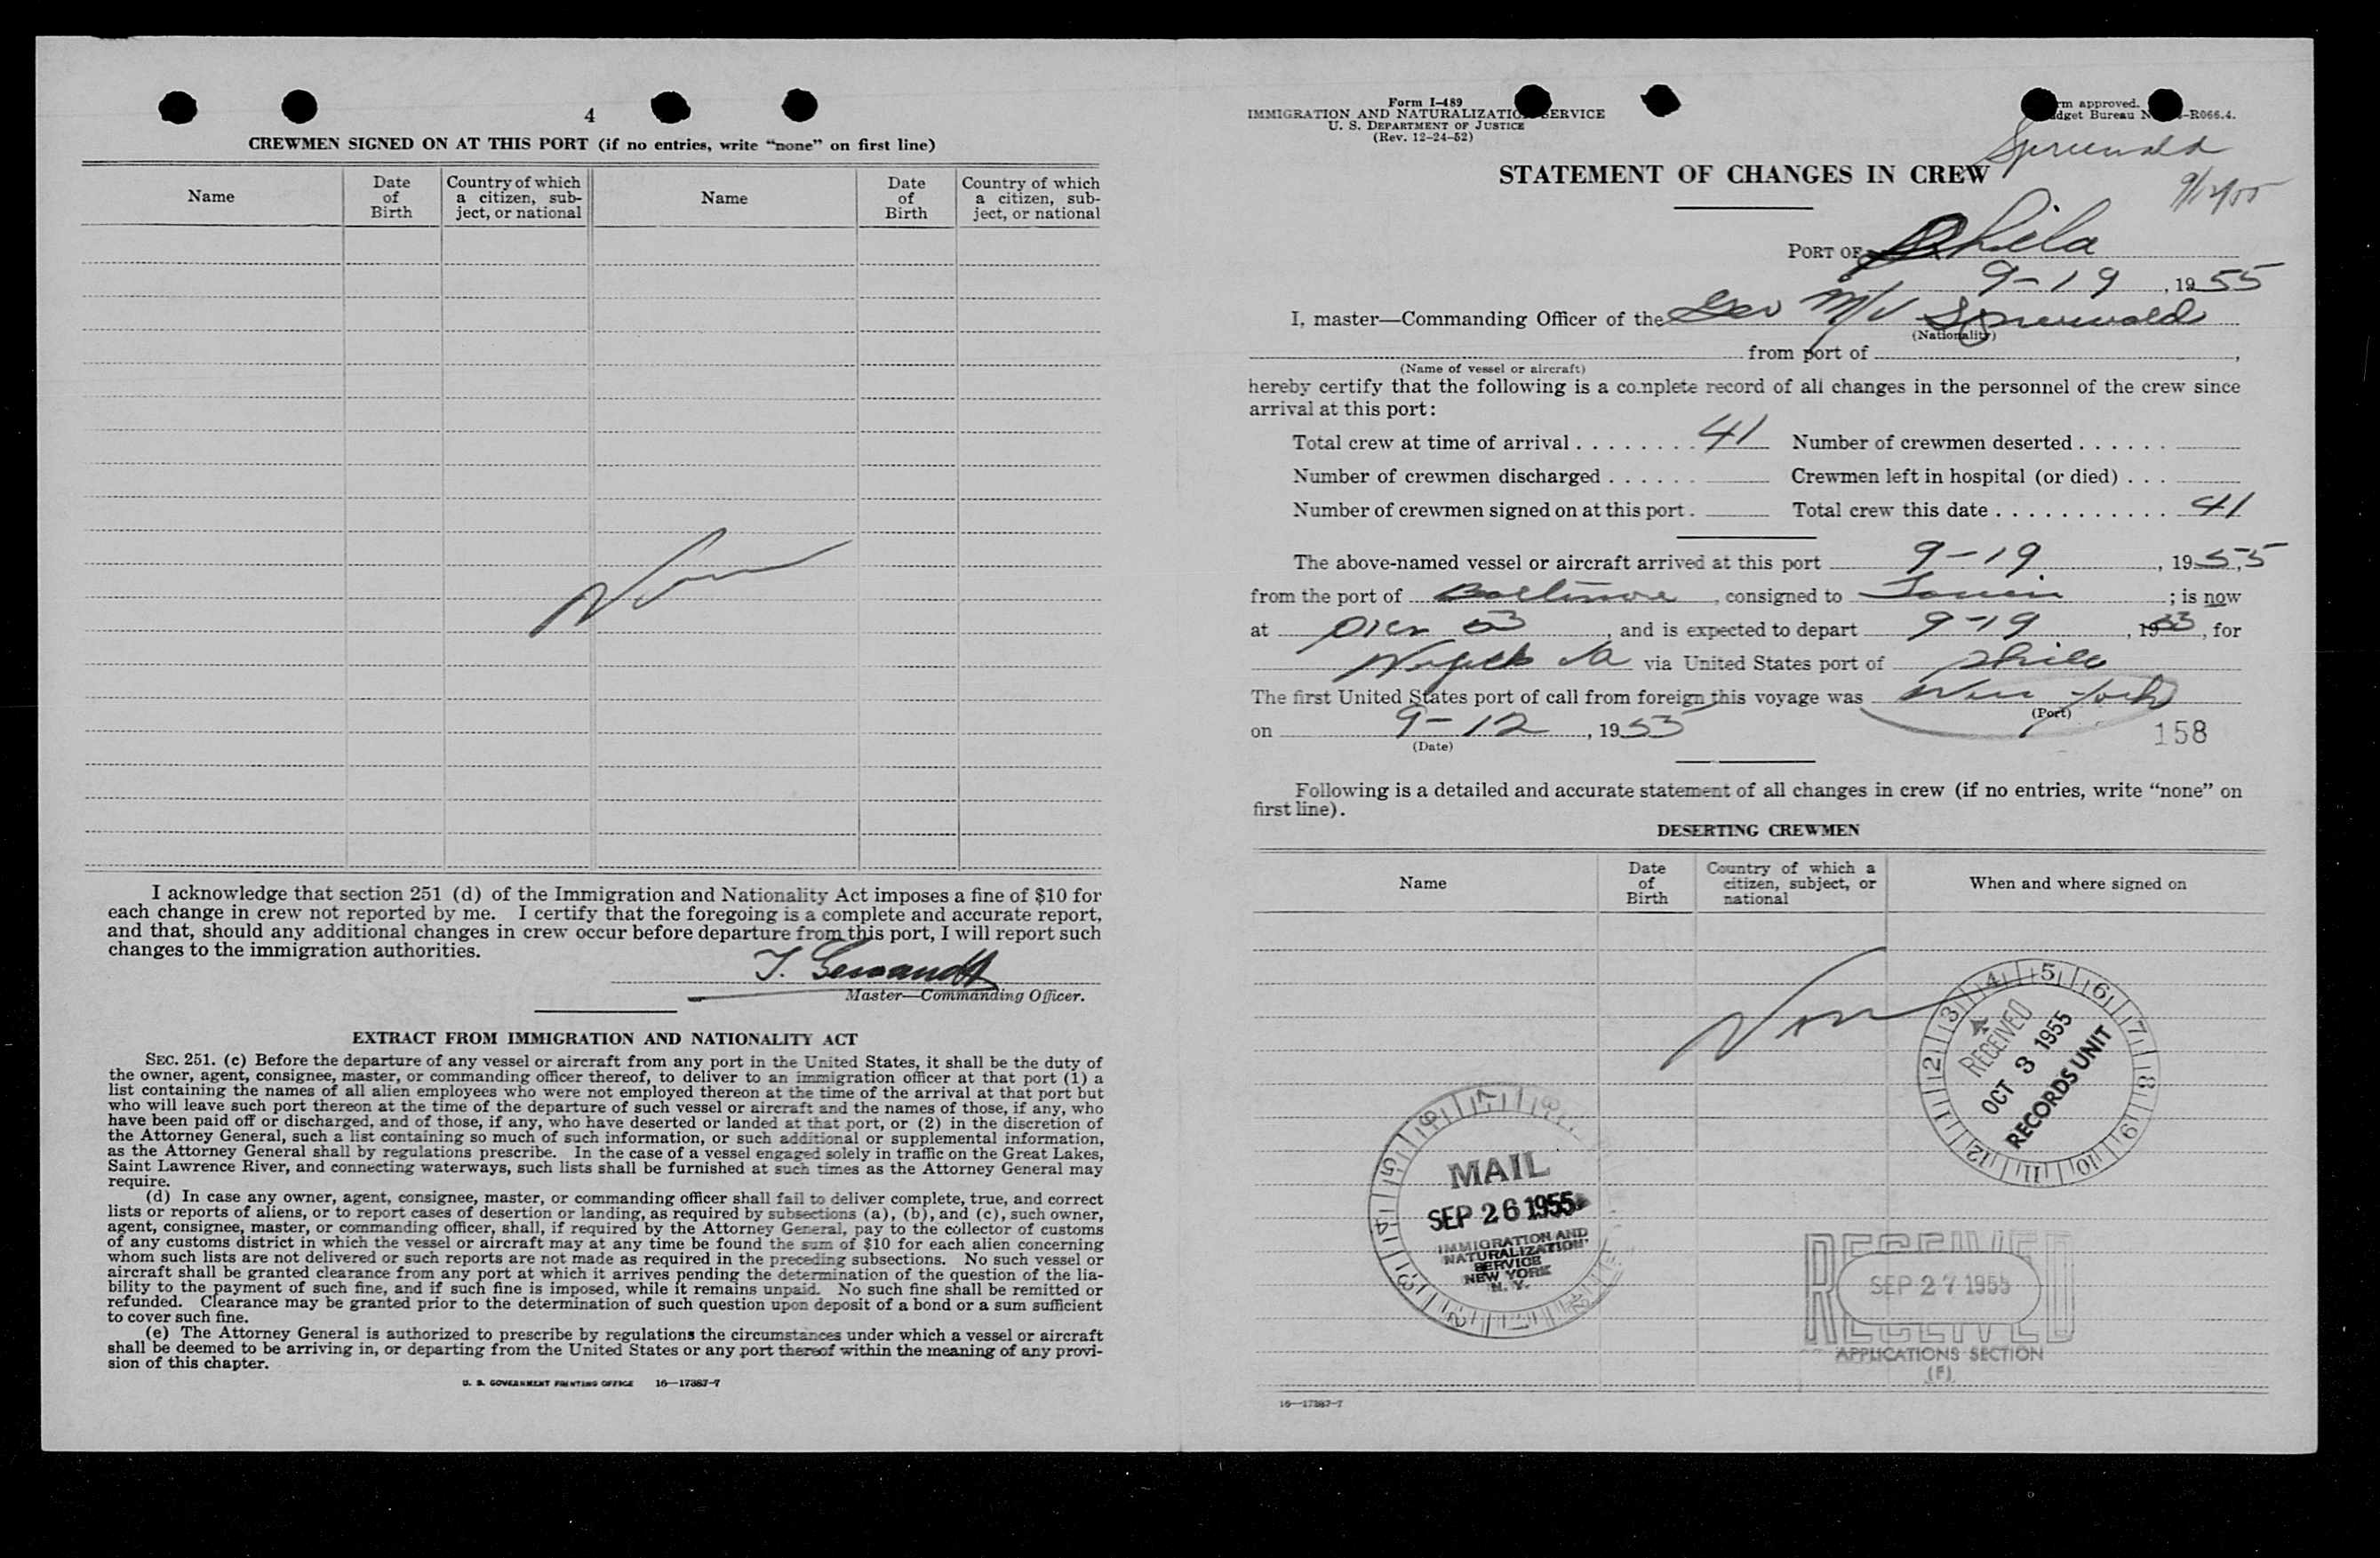 4
CREWMEN SIGNED ON AT THIS PORT (if no entries, write “none” on first line)
Name
Date of Birth
Country of which a citizen, subject, or national
Name
Date of Birth
Country of which a citizen, subject, or national
None
I acknowledge that section 251 (d) of the Immigration and Nationality Act imposes a fine of $10 for
each change in crew not reported by me. I certify that the foregoing is a complete and accurate report,
and that, should any additional changes in crew occur before departure from this port, I will report such
changes to the immigration authorities.
Master—Commanding Officer.
EXTRACT FROM IMMIGRATION AND NATIONALITY ACT
SEC. 251. (c) Before the departure of any vessel or aircraft from any port in the United States, it shall be the duty of
the owner, agent, consignee, master, or commanding officer thereof, to deliver to an immigration officer at that port (1) a
list containing the names of all alien employees who were not employed thereon at the time of the arrival at that port but
who will leave such port thereon at the time of the departure of such vessel or aircraft and the names of those, if any, who
have been paid off or discharged, and of those, if any, who have deserted or landed at that port, or (2) in the discretion of
the Attorney General, such a list containing so much of such information, or such additional or supplemental information,
as the Attorney General shall by regulations prescribe. In the case of a vessel engaged solely in traffic on the Great Lakes,
Saint Lawrence River, and connecting waterways, such lists shall be furnished at such times as the Attorney General may
require.
(d) In case any owner, agent, consignee, master, or commanding officer shall fail to deliver complete, true, and correct
lists or reports of aliens, or to report cases of desertion or landing, as required by subsections (a), (b), and (c), such owner,
agent, consignee, master, or commanding officer, shall, if required by the Attorney General, pay to the collector of customs
of any customs district in which the vessel or aircraft may at any time be found the sum of $10 for each alien concerning
whom such lists are not delivered or such reports are not made as required in the preceding subsections. No such vessel or
aircraft shall be granted clearance from any port at which it arrives pending the determination of the question of the lia-
bility to the payment of such fine, and if such fine is imposed, while it remains unpaid. No such fine shall be remitted or
refunded. Clearance may be granted prior to the determination of such question upon deposit of a bond or a sum sufficient
to cover such fine.
(e) The Attorney General is authorized to prescribe by regulations the circumstances under which a vessel or aircraft
shall be deemed to be arriving in, or departing from the United States or any port thereof within the meaning of any provi-
sion of this chapter.
U. S. GOVERNMENT PRINTING OFFICE 16—17387-7
Form I-489
IMMIGRATION AND NATURALIZATION SERVICE
U. S. DEPARTMENT OF JUSTICE
(Rev. 12-24-52)
rm approved.
dget Bureau N -R066.4.
Spreewald
9/12/55
STATEMENT OF CHANGES IN CREW
PORT OF Phila
9-19, 1955
I, master—Commanding Officer of the Ger M/V Spreewald
(Nationality)
from port of ,
(Name of vessel or aircraft)
hereby certify that the following is a complete record of all changes in the personnel of the crew since
arrival at this port:
Total crew at time of arrival 41 Number of crewmen deserted
Number of crewmen discharged Crewmen left in hospital (or died)
Number of crewmen signed on at this port Total crew this date 41
The above-named vessel or aircraft arrived at this port 9-19, 1955
from the port of Baltimore, consigned to ; is now
at Pier 53, and is expected to depart 9-19, 1955, for
Norfolk Va via United States port of Phila
The first United States port of call from foreign this voyage was New York
(Port)
on 9-12, 1955
(Date)
158
Following is a detailed and accurate statement of all changes in crew (if no entries, write “none” on
first line).
DESERTING CREWMEN
Name
Date of Birth
Country of which a citizen, subject, or national
When and where signed on
None
RECEIVED
OCT 3 1955
RECORDS UNIT
MAIL
SEP 26 1955
IMMIGRATION AND
NATURALIZATION
SERVICE
NEW YORK
N. Y.
RECEIVED
SEP 27 1955
RECEIVED
APPLICATIONS SECTION
(F)
16—17387-7